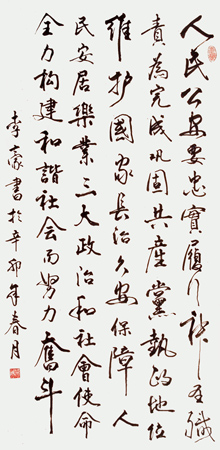 人民公安要忠實履行神圣職
責為完成巩固共産黨執政地位
維护國家長治久安保障人
民安居樂業三大政治和社會使命
全力构建和諧社会而努力奮斗
李豪書於辛卯年春月